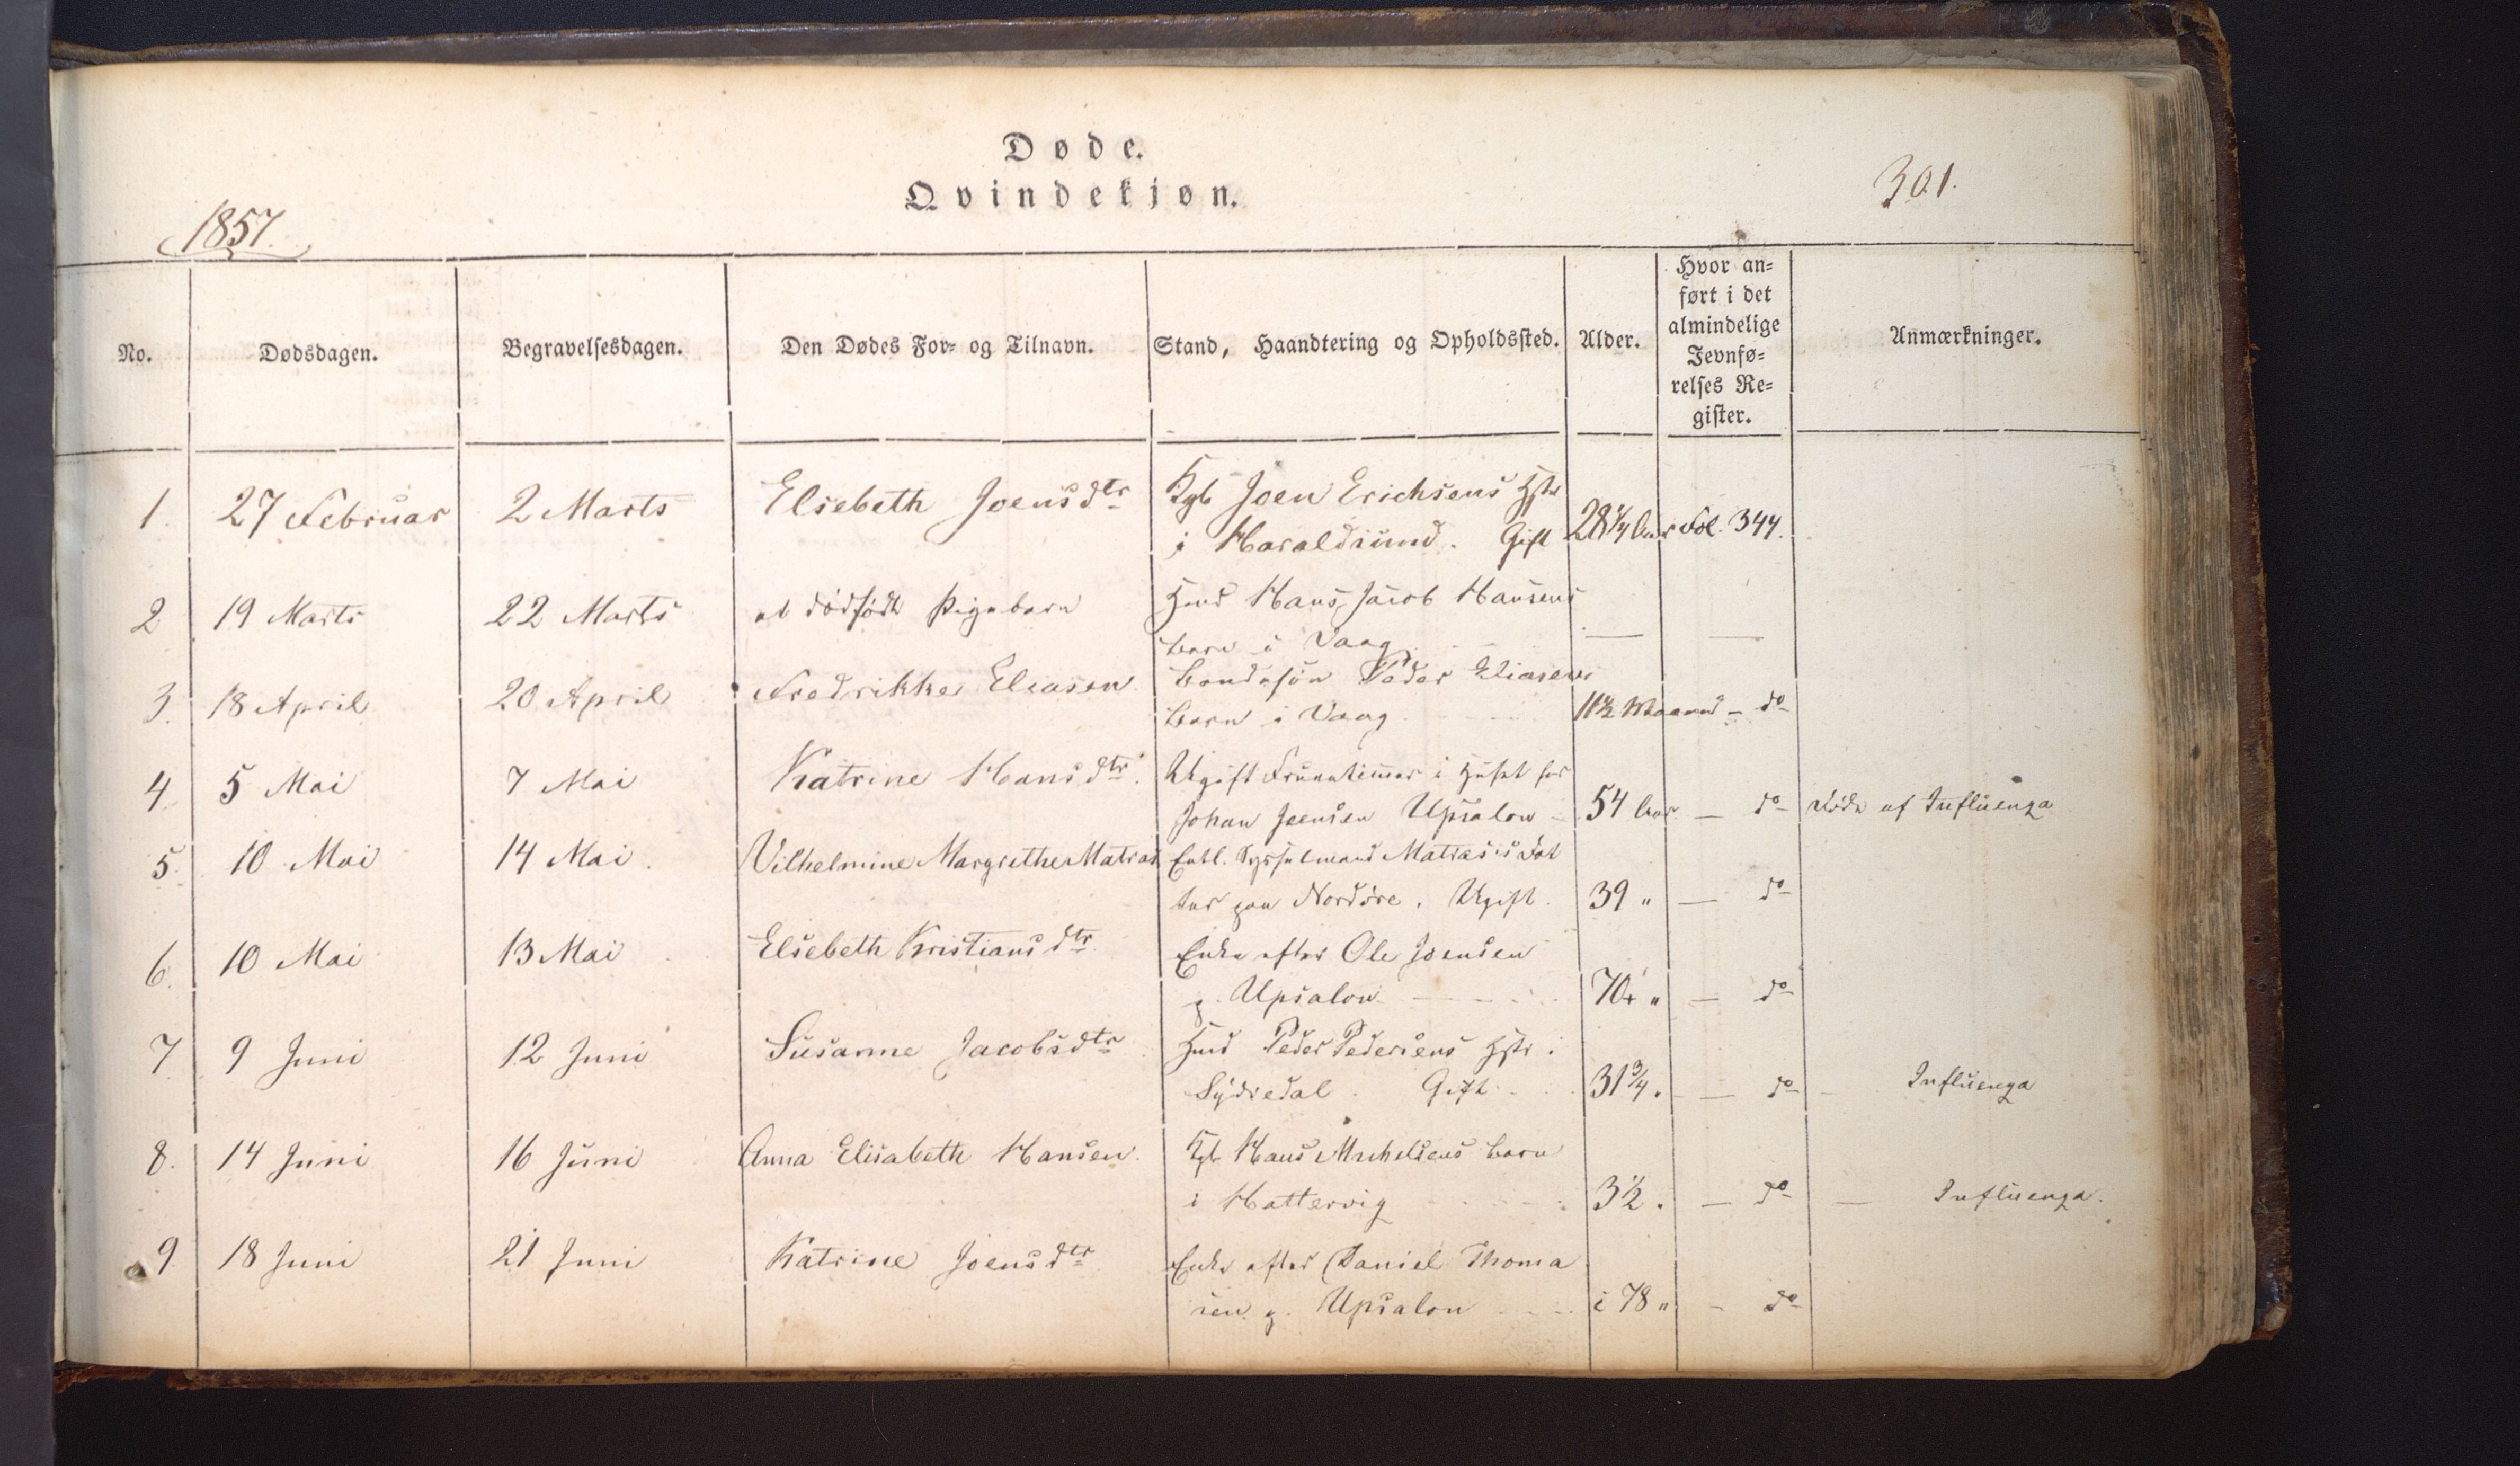 Døde.
Qvindekjøn.
301.
1857.
No.
Dødsdagen.
Begravelsesdagen.
Den Dødes For- og Tilnavn.
Stand, Haandtering og Opholdssted.
Alder.
Hvor an-
ført i det
almindelige
Jevnfø-
relses Re-
gister.
Anmærkninger.
1. 27 Februar 2 Marts Elsebeth Joensdtr Kgb Joen Erichsens Hstr
i Haraldsund. Gift 28 1/4 Aar Fol. 344.
2 19 Marts 22 Marts et dödfödt Pigebarn Hmd Hans Jacob Hansens
barn i Vaag — —
3. 18 April 20 April Fredrikke Eliasen Bondesön Peder Eliasens
barn i Vaag 11 1/2 Maaned – do
4. 5 Mai 7 Mai Katrine Hansdtr. Ugift Fruentimmer i Huset for
Johan Joensen Upsalon – 54 Aar – do Döde af Influenza
5. 10 Mai 14 Mai. Vilhelmine Margrethe Matras Entl. Sysselmand Matras's Dot
ter paa Nordöre. Ugift. 39 " — do
6. 10 Mai 13 Mai Elsebeth Kristiansdtr Enke efter Ole Joensen
p. Upsalon 70 " — do
7 9 Juni 12 Juni Susanne Jacobsdtr Hmd Peder Pedersens Hstr i
Sydredal. Gift 31 3/4. — do – Influenza
8. 14 Juni 16 Juni Anna Elisabeth Hansen. Kgb Hans Michelsens barn
i Hattervig 3 1/2. — do — Influenza.
9 18 Juni 21 Juni Katrine Joensdtr Enke efter Daniel Thoma
sen p. Upsalon i 78 " – do